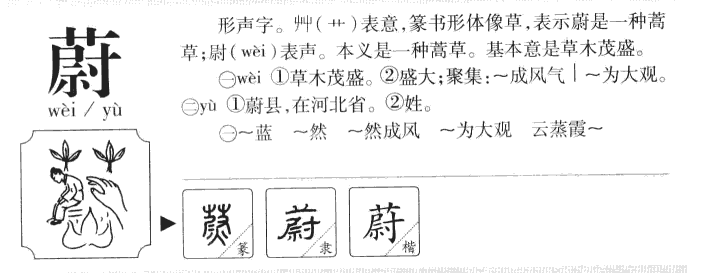 蔚
wèi / yù
形声字。艸(艹)表意,篆书形体像草,表示蔚是一种蒿
草;尉(wèi)表声。本义是一种蒿草。基本意是草木茂盛。
㊀wèi ①草木茂盛。②盛大;聚集:~成风气|~为大观。
㊁yù ①蔚县,在河北省。②姓。
㊀~蓝 ~然 ~然成风 ~为大观 云蒸霞~
蔚 篆 蔚 隶 蔚 楷